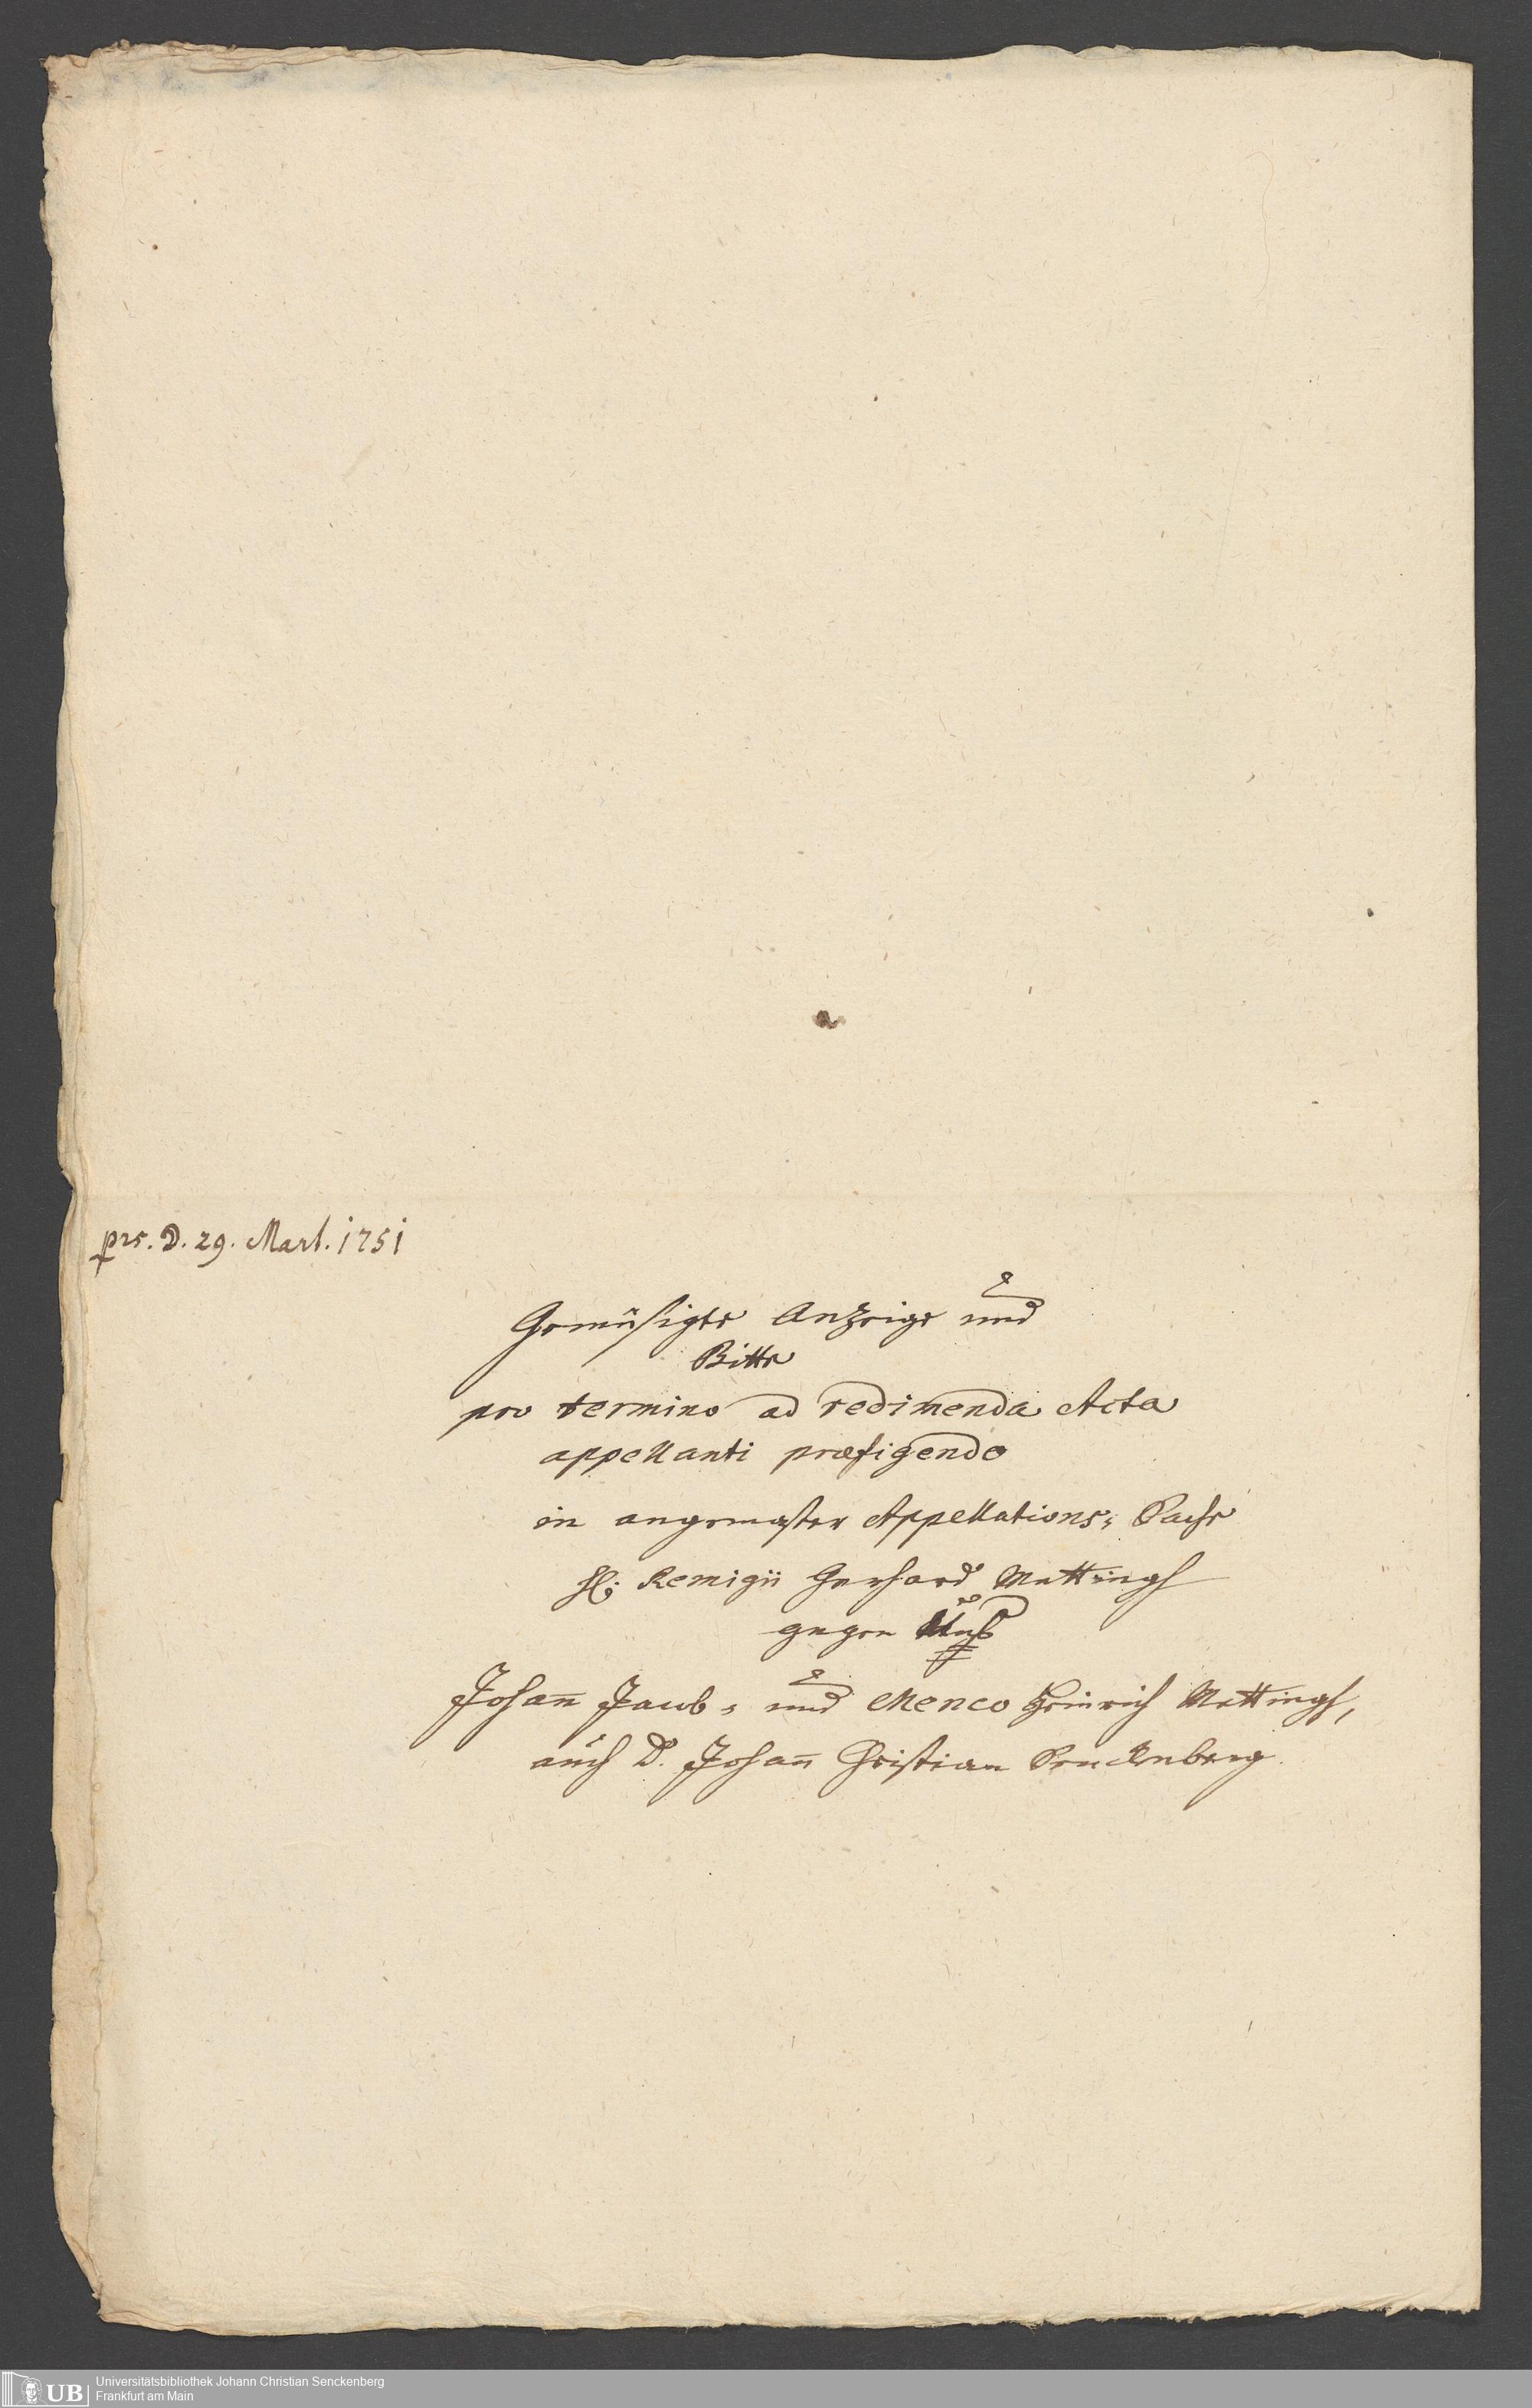 prs. D. 29. Mart. 1751
Gemüsigte Anzeige und
Bitte
pro termino ad redimenda Acta
appellanti præfigendo
in angemaster Appellations- Sache
H: Remigii Gerhard Mettingh
gegen Unß
Johan̄ Jacob- und Menco Heinrich Mettingh,
auch D. Johan̄ Christian Senckenberg.
UB
Universitätsbibliothek Johann Christian Senckenberg
Frankfurt am Main